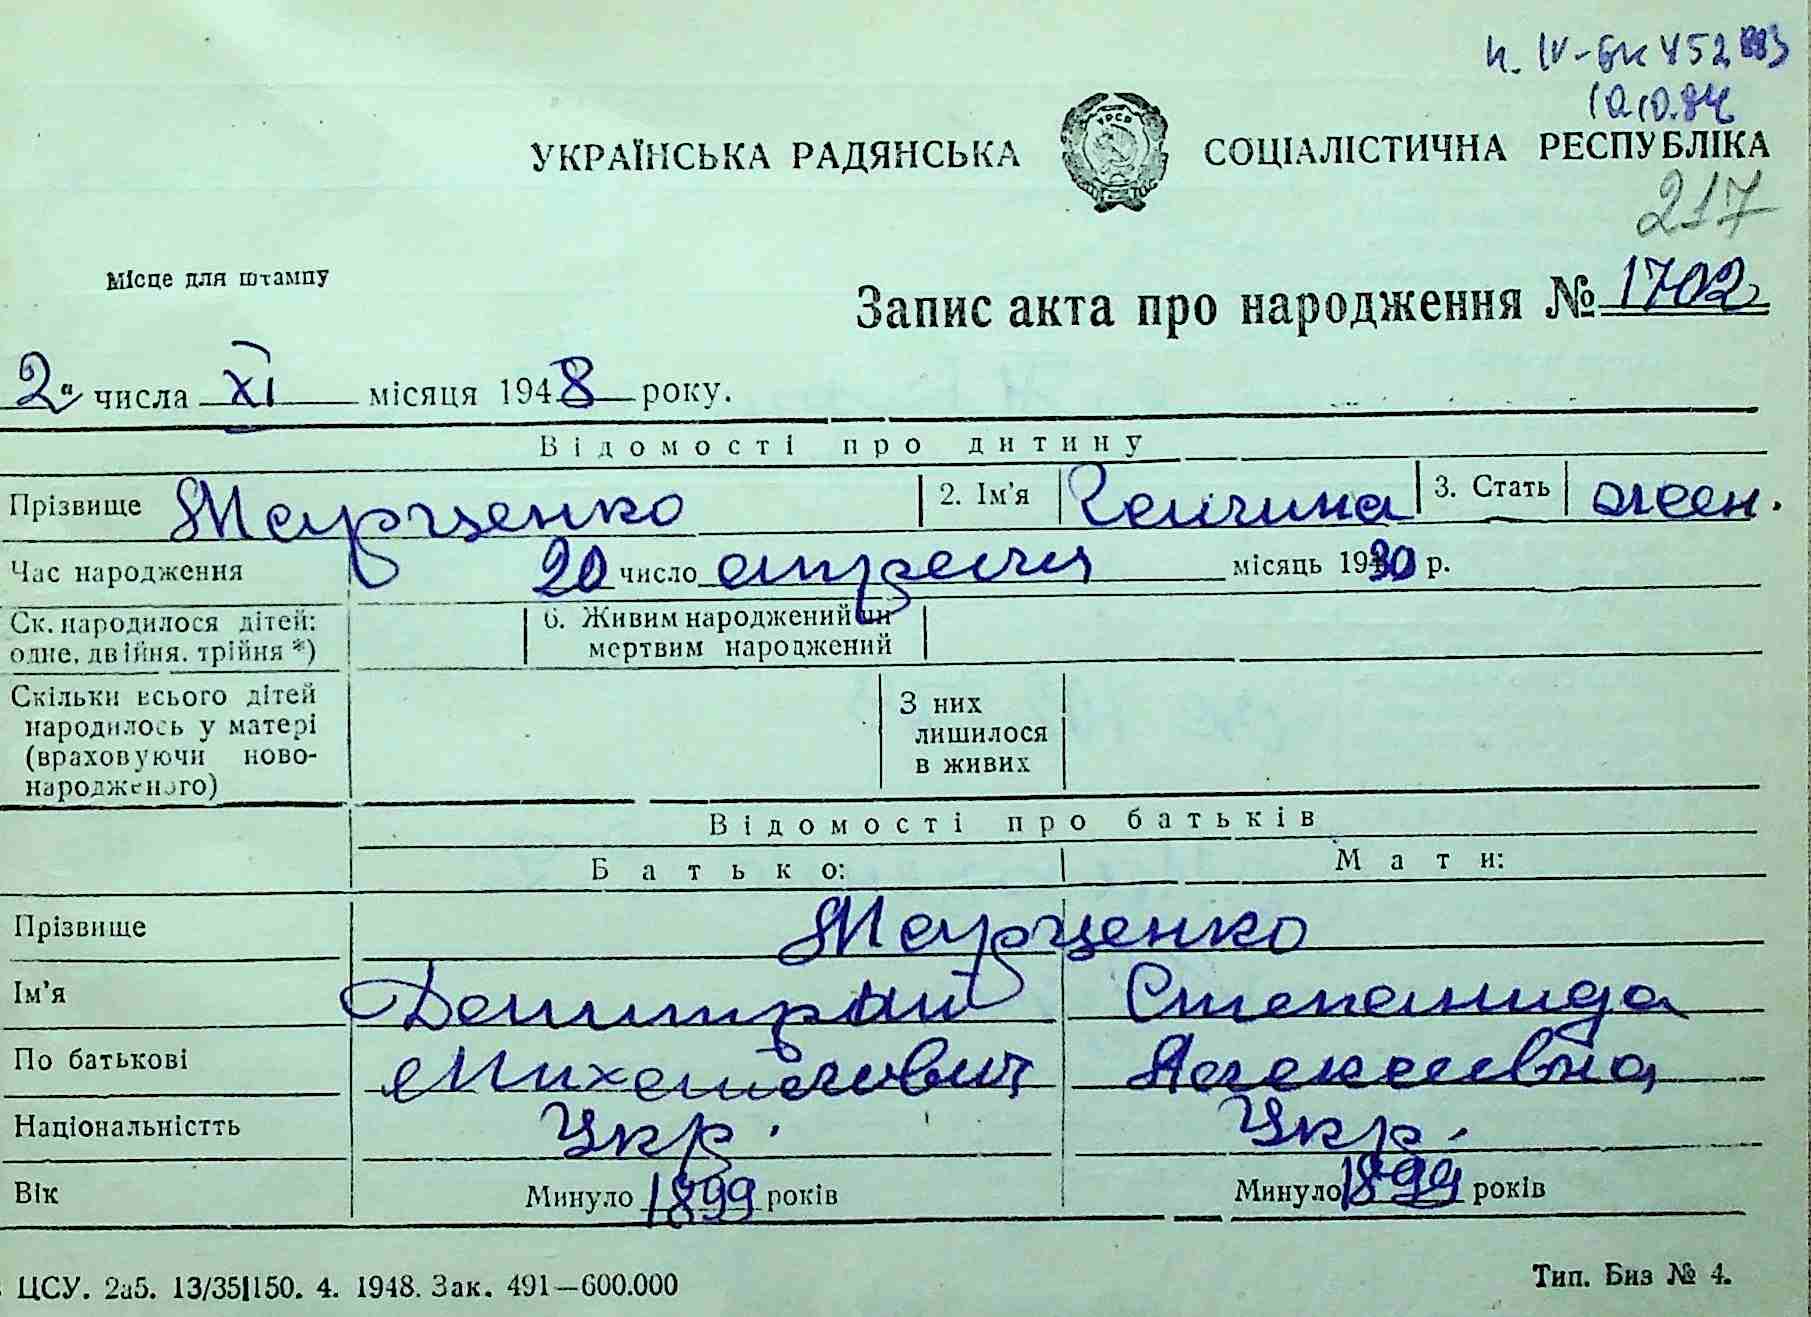 н. IV-БК 452883
10.10.84
УКРАЇНСЬКА РАДЯНСЬКА СОЦІАЛІСТИЧНА РЕСПУБЛІКА
УРСР
217
Місце для штампу
Запис акта про народження № 1702
2 числа XI місяця 1948 року.
Відомості про дитину
Прізвище Марценко 2. Ім'я Галина 3. Стать жен.
Час народження 20 число апреля місяць 1930 р.
Ск. народилося дітей: одне, двійня, трійня *)
6. Живим народжений чи мертвим народжений
Скільки всього дітей народилось у матері (враховуючи ново-народженого)
З них лишилося в живих
Відомості про батьків
Батько: Мати:
Прізвище Марценко
Ім'я Дмитрий Степанида
По батькові Михайлович Алексеевна
Національністть Укр. Укр.
Вік Минуло 1899 років Минуло 1899 років
ЦСУ. 2а5. 13/35|150. 4. 1948. Зак. 491—600.000
Тип. Биз № 4.